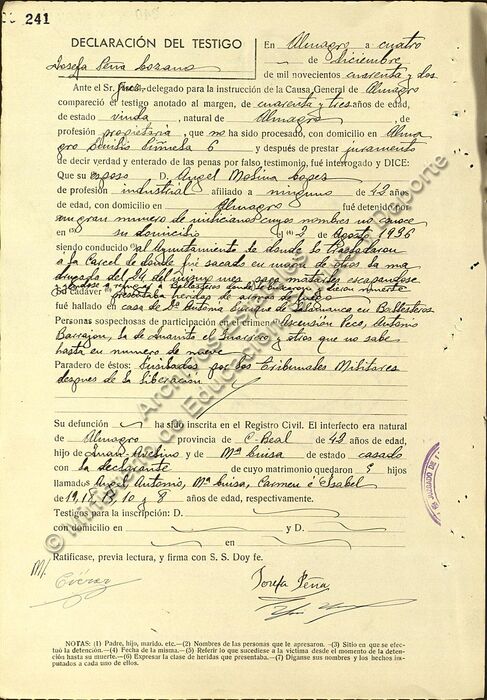 241
DECLARACIÓN DEL TESTIGO
Josefa Peña Lozano
En Almagro a cuatro
de diciembre
de mil novecientos cuarenta y dos
Ante el Sr. Juez delegado para la instrucción de la Causa General de Almagro
compareció el testigo anotado al margen, de cuarenta y tres años de edad,
de estado viuda, natural de Almagro, de
profesión propietaria, que no ha sido procesado, con domicilio en Alma
gro Emilio Piñuela 6 y después de prestar juramento
de decir verdad y enterado de las penas por falso testimonio, fué interrogado y DICE:
Que su esposo D. Angel Molina Lopez
de profesión industrial afiliado a ninguno de 42 años
de edad, con domicilio en Almagro fué detenido por
un gran numero de milicianos cuyos nombres no conoce
en (3) su domicilio (4) 2 de Agosto 1936
siendo conducido al Ayuntamiento de donde lo trasladaron
a la Carcel de donde fué sacado en union de otros la ma
drugada del 24 del mismo mes para matarles escapandose
Ballesteros donde le dieron muerte
Su cadáver presentaba heridas de armas de fuego
fué hallado en casa de Dª Antonia de Salamanca en Ballesteros
Personas sospechosas de participación en el crimen: Ascension Peco, Antonio
Barrajon, la de Juanito el Guarrero y otros que no sabe
hasta en numero de nueve
Paradero de éstos: Fusilados por los Tribunales Militares
despues de la liberacion
Su defunción ha sido inscrita en el Registro Civil. El interfecto era natural
de Almagro provincia de C-Real de 42 años de edad,
hijo de Juan Avelino y de Mª Luisa de estado casado
con la declarante de cuyo matrimonio quedaron 5 hijos
llamados Angel, Antonio, Mª Luisa, Carmen é Isabel
de 10 y 8 años de edad, respectivamente.
Testigos para la inscripción: D.
con domicilio en y D.
en
Ratifícase, previa lectura, y firma con S. S. Doy fe.
Josefa Peña
NOTAS: (1) Padre, hijo, marido, etc.—(2) Nombres de las personas que le apresaron.—(3) Sitio en que se efec-
tuó la detención.—(4) Fecha de la misma.—(5) Referir lo que sucediese a la víctima desde el momento de la deten-
ción hasta su muerte.—(6) Expresar la clase de heridas que presentaba.—(7) Díganse sus nombres y los hechos im-
putados a cada uno de ellos.
© Ministerio de Educación, Cultura y Deporte
Archivos Estatales